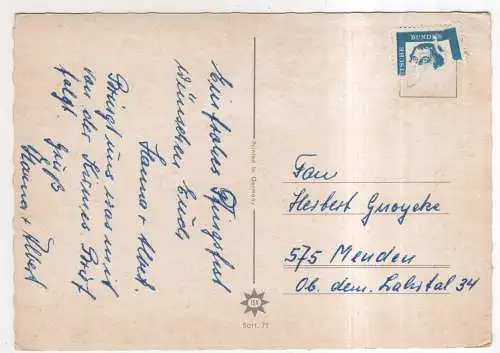 Ein frohes Pfingstfest
wünschen Euch
Hanna + Albert.
Bringt uns was mit
von der Brief
folgt. Gruß
Hanna + Albert
Printed in Germany
Sort. 71
DEUTSCHE BUNDES
Fam
Herbert
575 Menden
Ob. dem. Lahrtal 34